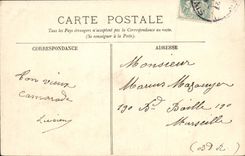 CARTE POSTALE
Tous les Pays étrangers n'acceptent pas la Correspondance au recto.
(Se renseigner à la Poste)
CORRESPONDANCE
ADRESSE
Monsieur
Marius
bon vieux
camarade
Lucien
190 Bd Baille 190
Marseille
(B. d. R.)